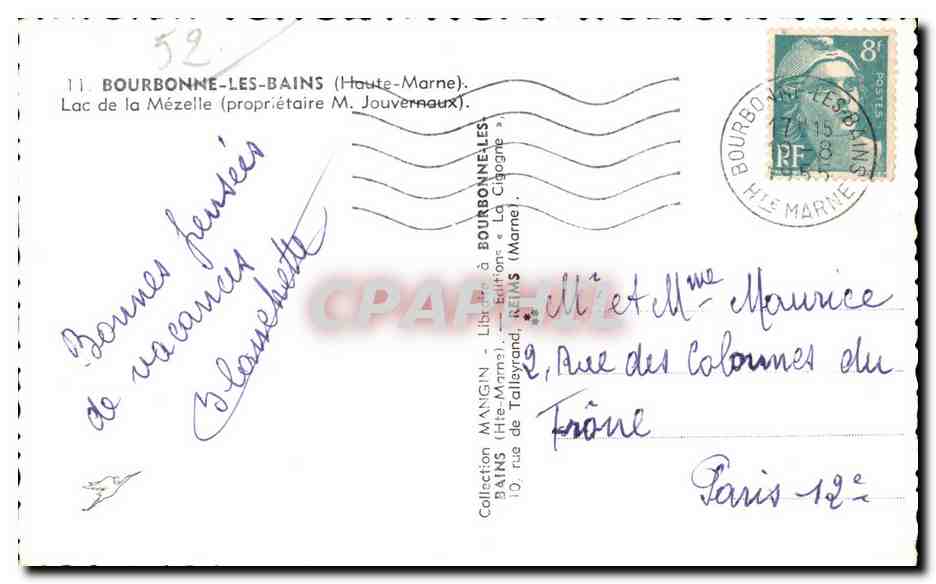 52.
11. BOURBONNE-LES-BAINS (Haute-Marne).
Lac de la Mézelle (propriétaire M. Jouvernaux).
Bonnes pensées
de vacances
Collection MANGIN - Libraire à BOURBONNE-LES-
BAINS (Hte-Marne). — Editions « La Cigogne »,
10, rue de Talleyrand, REIMS (Marne).
8f
POSTES
RF
BOURBONNE-LES-BAINS
17 15
8
Hte MARNE
CPAPHIL
Mr et Mme Maurice
2, Rue des Colonnes du
Trône
Paris-12e